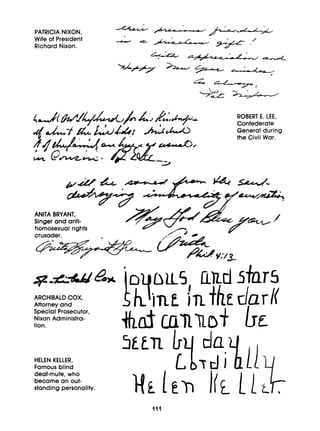 PATRICIA NIXON,
Wife of President
Richard Nixon.
Their precious friendship
is a priceless gift!
With appreciation and
Happy New Year wishes,
As always,
Pat Nixon
ROBERT E. LEE,
Confederate
General during
the Civil War.
for his kindness
R E Lee
will be saved from the soul
destroying immorality of
May God Bless you!
ANITA BRYANT,
Singer and anti-
homosexual rights
crusader.
Anita Bryant Green
Anita
Phil. 4:13
ARCHIBALD COX,
Attorney and
Special Prosecutor,
Nixon Administra-
tion.
Archibald Cox
joyous, and stars
shine in the dark
that cannot be
seen by day.
Cordially
Helen Keller.
HELEN KELLER,
Famous blind
deaf-mute, who
became an out-
standing personality.
111